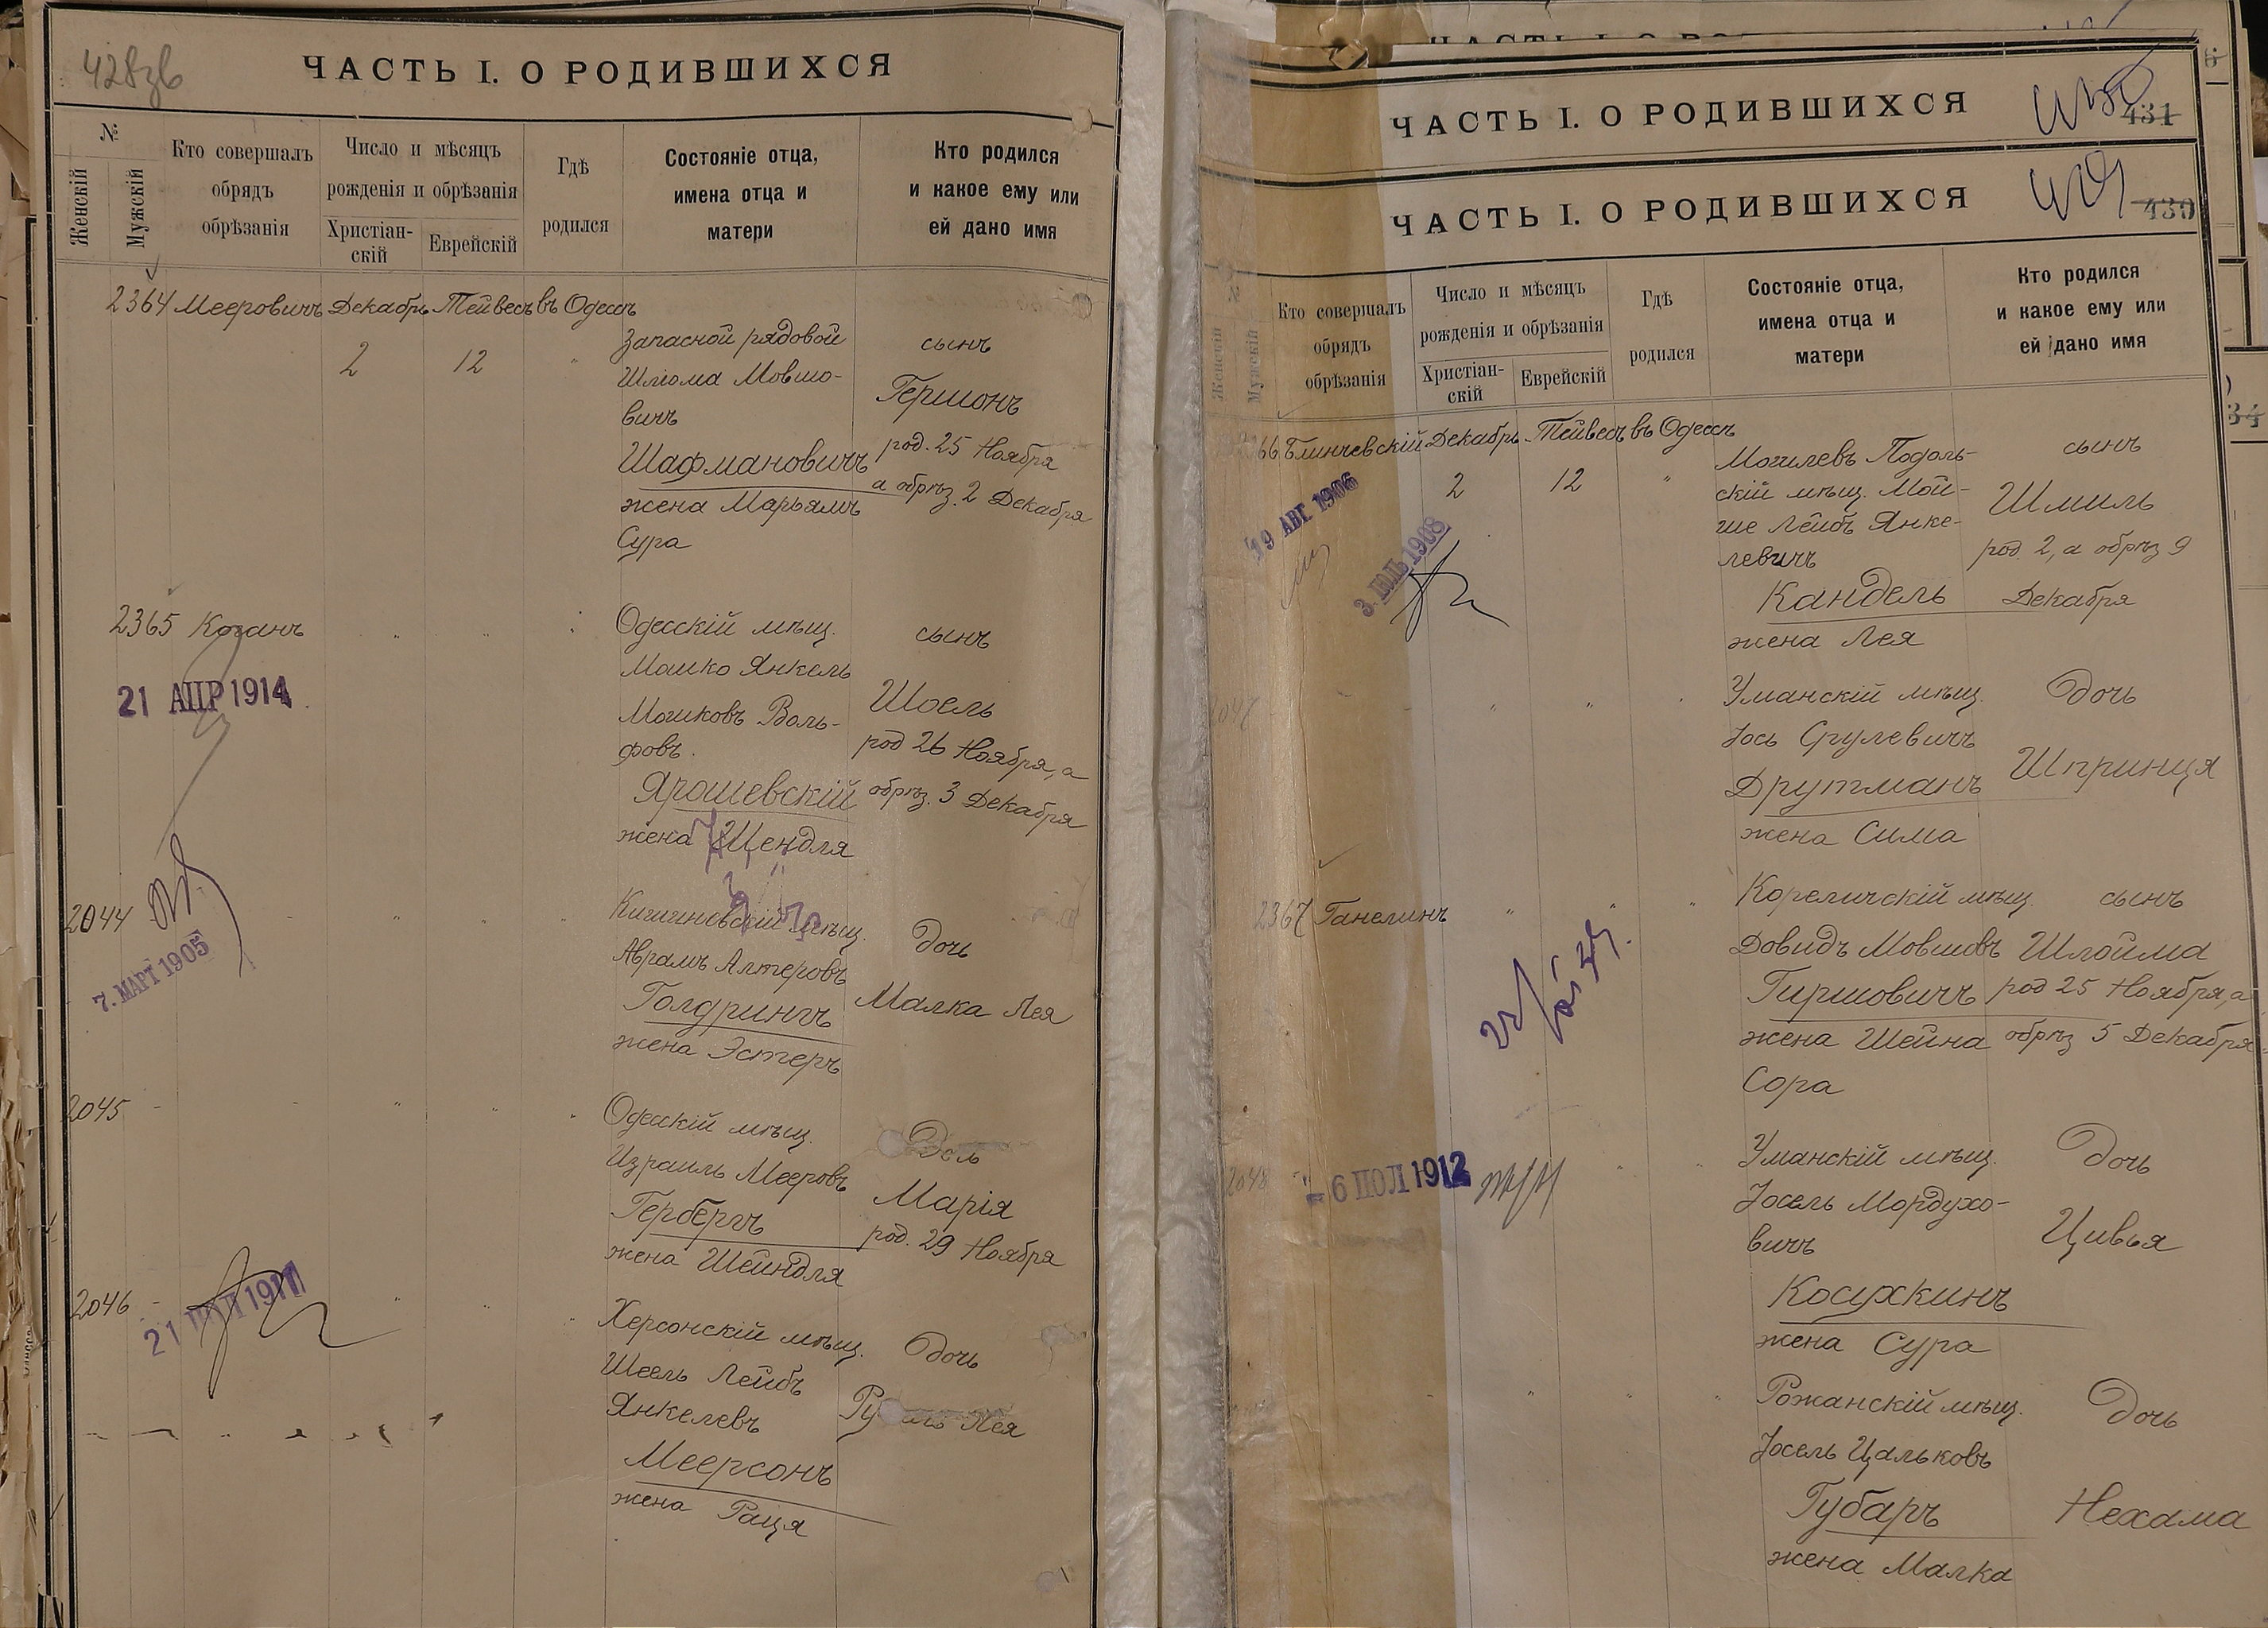 428зв
ЧАСТЬ I. О РОДИВШИХСЯ
№
Женскій
Мужскій
Кто совершалъ
обрядъ
обрѣзанія
Число и мѣсяцъ
рожденія и обрѣзанія
Христіан-
скій
Еврейскій
Гдѣ
родился
Состояніе отца,
имена отца и
матери
Кто родился
и какое ему или
ей дано имя
2364 Мееровичъ Декабрь Тейвесъ въ Одессѣ
2 12 "
Запасной рядовой
Шлiома Мовшо-
вичъ
Шафмановичъ
жена Марьямъ
Сура
сынъ
Гершонъ
род. 25 Ноября
а обрѣз. 2 Декабря
2365 Коганъ " " "
21 АПР 1914
Одесскій мѣщ.
Мошко Янкель
Мошковъ Воль-
фовъ.
Ярошевскій
жена Шендля
сынъ
Шоель
род 26 Ноября, а
обрѣз. 3 Декабря
2044
7. МАРТ 1905
Кишиневскій мѣщ.
Аврамъ Алтеровъ
Голдрингъ
жена Эстеръ
дочь
Малка Лея
2045 - - " " "
Одесскій мѣщ.
Израиль Мееровъ
Гербергъ
жена Шейндля
Марія
род. 29 Ноября
2046 - " " "
Херсонскій мѣщ.
Шеель Лейбъ
Янкелевъ
Меерсонъ
жена Раця
дочь
Лея
ЧАСТЬ I. О РОДИВШИХСЯ
431
ЧАСТЬ I. О РОДИВШИХСЯ
430
№
Женскій
Мужскій
Кто совершалъ
обрядъ
обрѣзанія
Число и мѣсяцъ
рожденія и обрѣзанія
Христіан-
скій
Еврейскій
Гдѣ
родился
Состояніе отца,
имена отца и
матери
Кто родился
и какое ему или
ей дано имя
34
66 Блинчевскій Декабрь Тейвесъ въ Одессѣ
2 12 "
19 АВГ. 1906
3. ІЮЛЬ 1908
Могилевъ Подоль-
скій мѣщ. Мой-
ше Лейбъ Янке-
левичъ
Кандель
жена Лея
сынъ
Шмиль
род. 2, а обрѣз 9
Декабря
2047 - - " " "
Уманскій мѣщ.
Іось Срулевичъ
Друтманъ
жена Сима
Дочь
Шпринця
2367 Ганелинъ " " "
Кореличскій мѣщ.
Довидъ Мовшовъ
Гиршовичъ
жена Шейна
Сора
сынъ
Шлойма
род 25 Ноября, а
обрѣз 5 Декабря
2048
6 ІЮЛ 1912
Уманскій мѣщ.
Іосель Мордухо-
вичъ
Косухкинъ
жена Сура
Дочь
Цивья
Рожанскій мѣщ.
Іосель Цальковъ
Губаръ
жена Малка
Дочь
Нехама